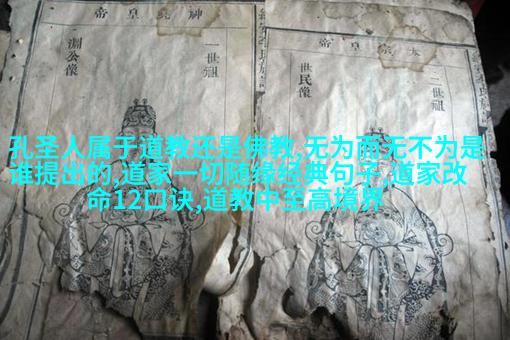 神堯皇帝
一世祖
淵公像
太宗皇帝
二世祖
世民像
孔圣人属于道教还是佛教,无为而无不为是
谁提出的,道家一切随缘经典句子,道家改
命12口诀,道教中至高境界